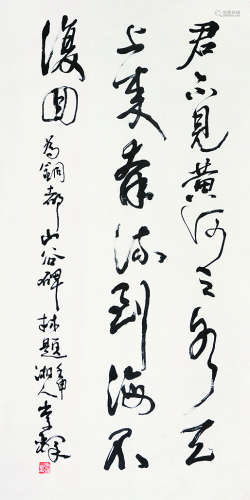 君不見黄河之水天
上來奔流到海不
復回
為銅都山谷碑林題 壬申 湘人李鐸